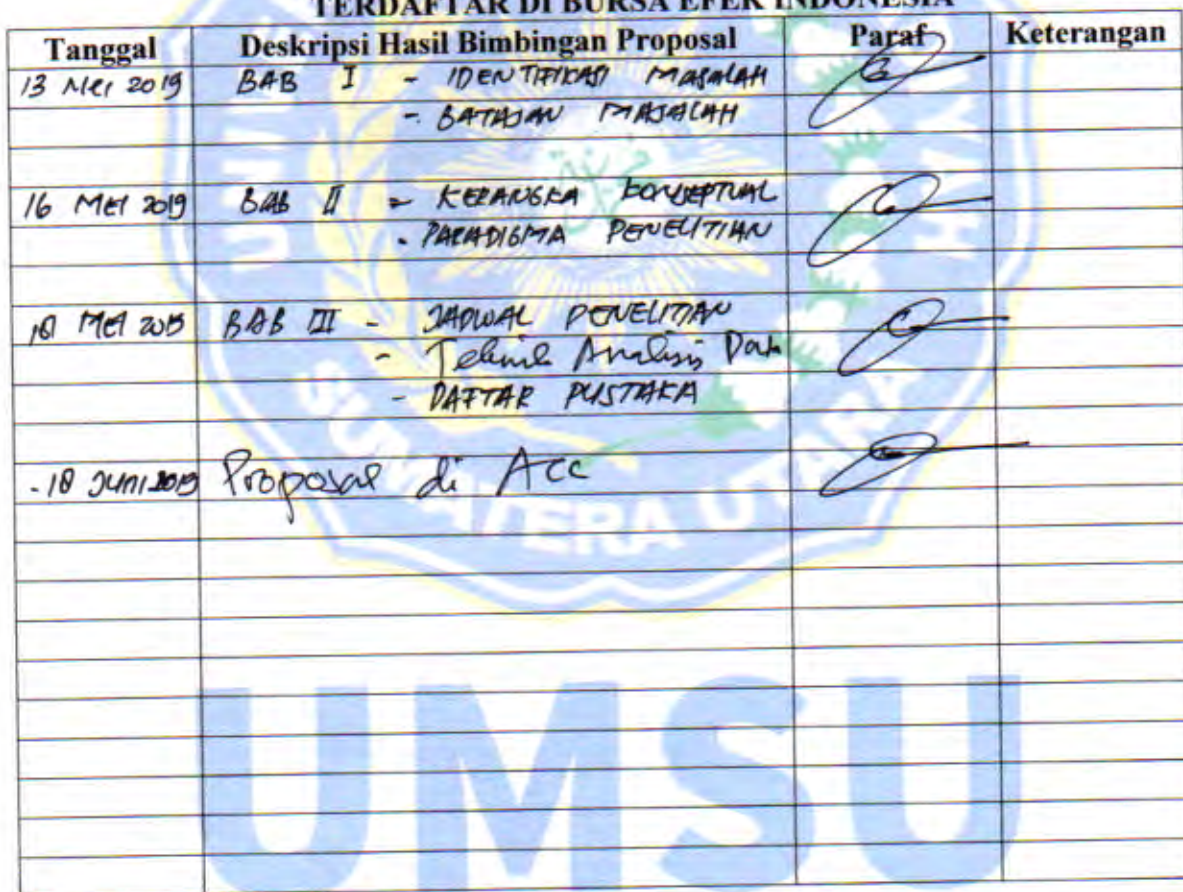 TERDAFTAR DI BURSA EFEK INDONESIA
Tanggal Deskripsi Hasil Bimbingan Proposal Paraf Keterangan
13 Mei 2019 BAB I - IDENTIFIKASI MASALAH
- BATASAN MASALAH
16 MEI 2019 BAB II - KERANGKA KONSEPTUAL
- PARADIGMA PENELITIAN
MEI BAB III - JADWAL PENELITIAN
- Teknik Analisis Data
- DAFTAR PUSTAKA
- 18 JUNI 2019 Proposal di Acc
SUMATERA UTARA
UMSU